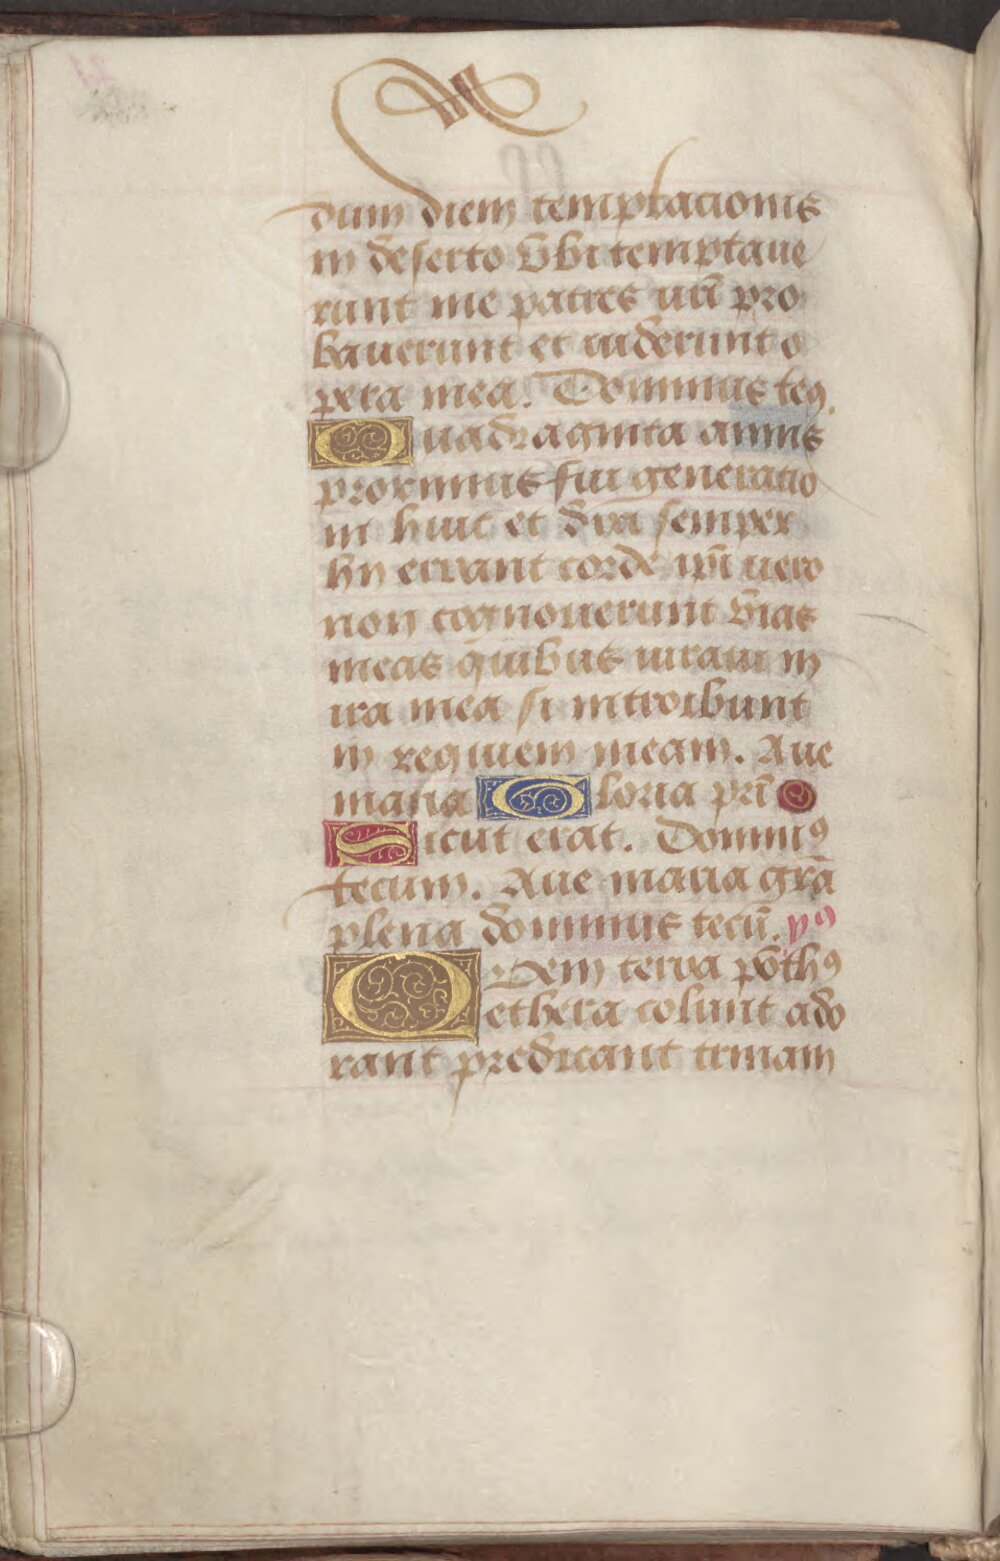 dum diem temptacionis
in deserto Vbi temptaue
runt me patres vr̄i pro
bauerunt et viderunt o
pera mea. Dominus tecꝰ.
Quadraginta annis
proximus fui generatio
ni huic et dixi semper
hii errant corde ip̄i vero
non cognouerunt vias
meas quibus iuraui in
ira mea si introibunt
in requiem meam. Aue
maria Gloria pr̄i
Sicut erat. Dominꝰ
tecum. Aue maria gr̄a
plena dominus tecū. ypꝰ
Quem terra pōthꝰ
ethera colunt ado
rant predicant trinam